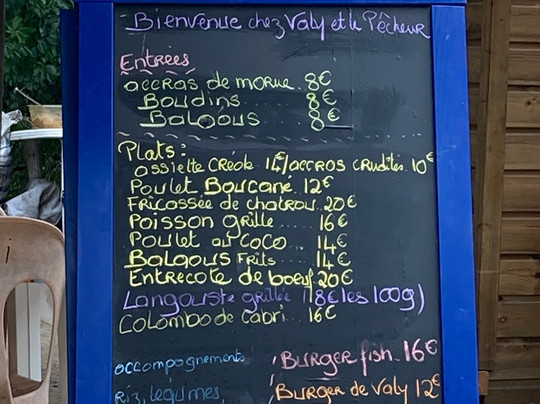 Bienvenue chez Valy et le Pêcheur
Entrées
accras de morue. 8€
Boudins ... 8€
Balaous 8€
Plats:
assiette Créole 14€/accros crudités. 10€
Poulet Boucane. 12€
Fricassée de chatrou. 20€
Poisson grille ... 16€
Poulet au coco .. 14€
Balaous Frits .... 14€
Entrecote de boeuf. 20€
Langouste grillée (18€ les 100g)
Colombo de cabri ... 16€
accompagnements
Burger fish. 16€
riz, legumes,
Burger de Valy 12€